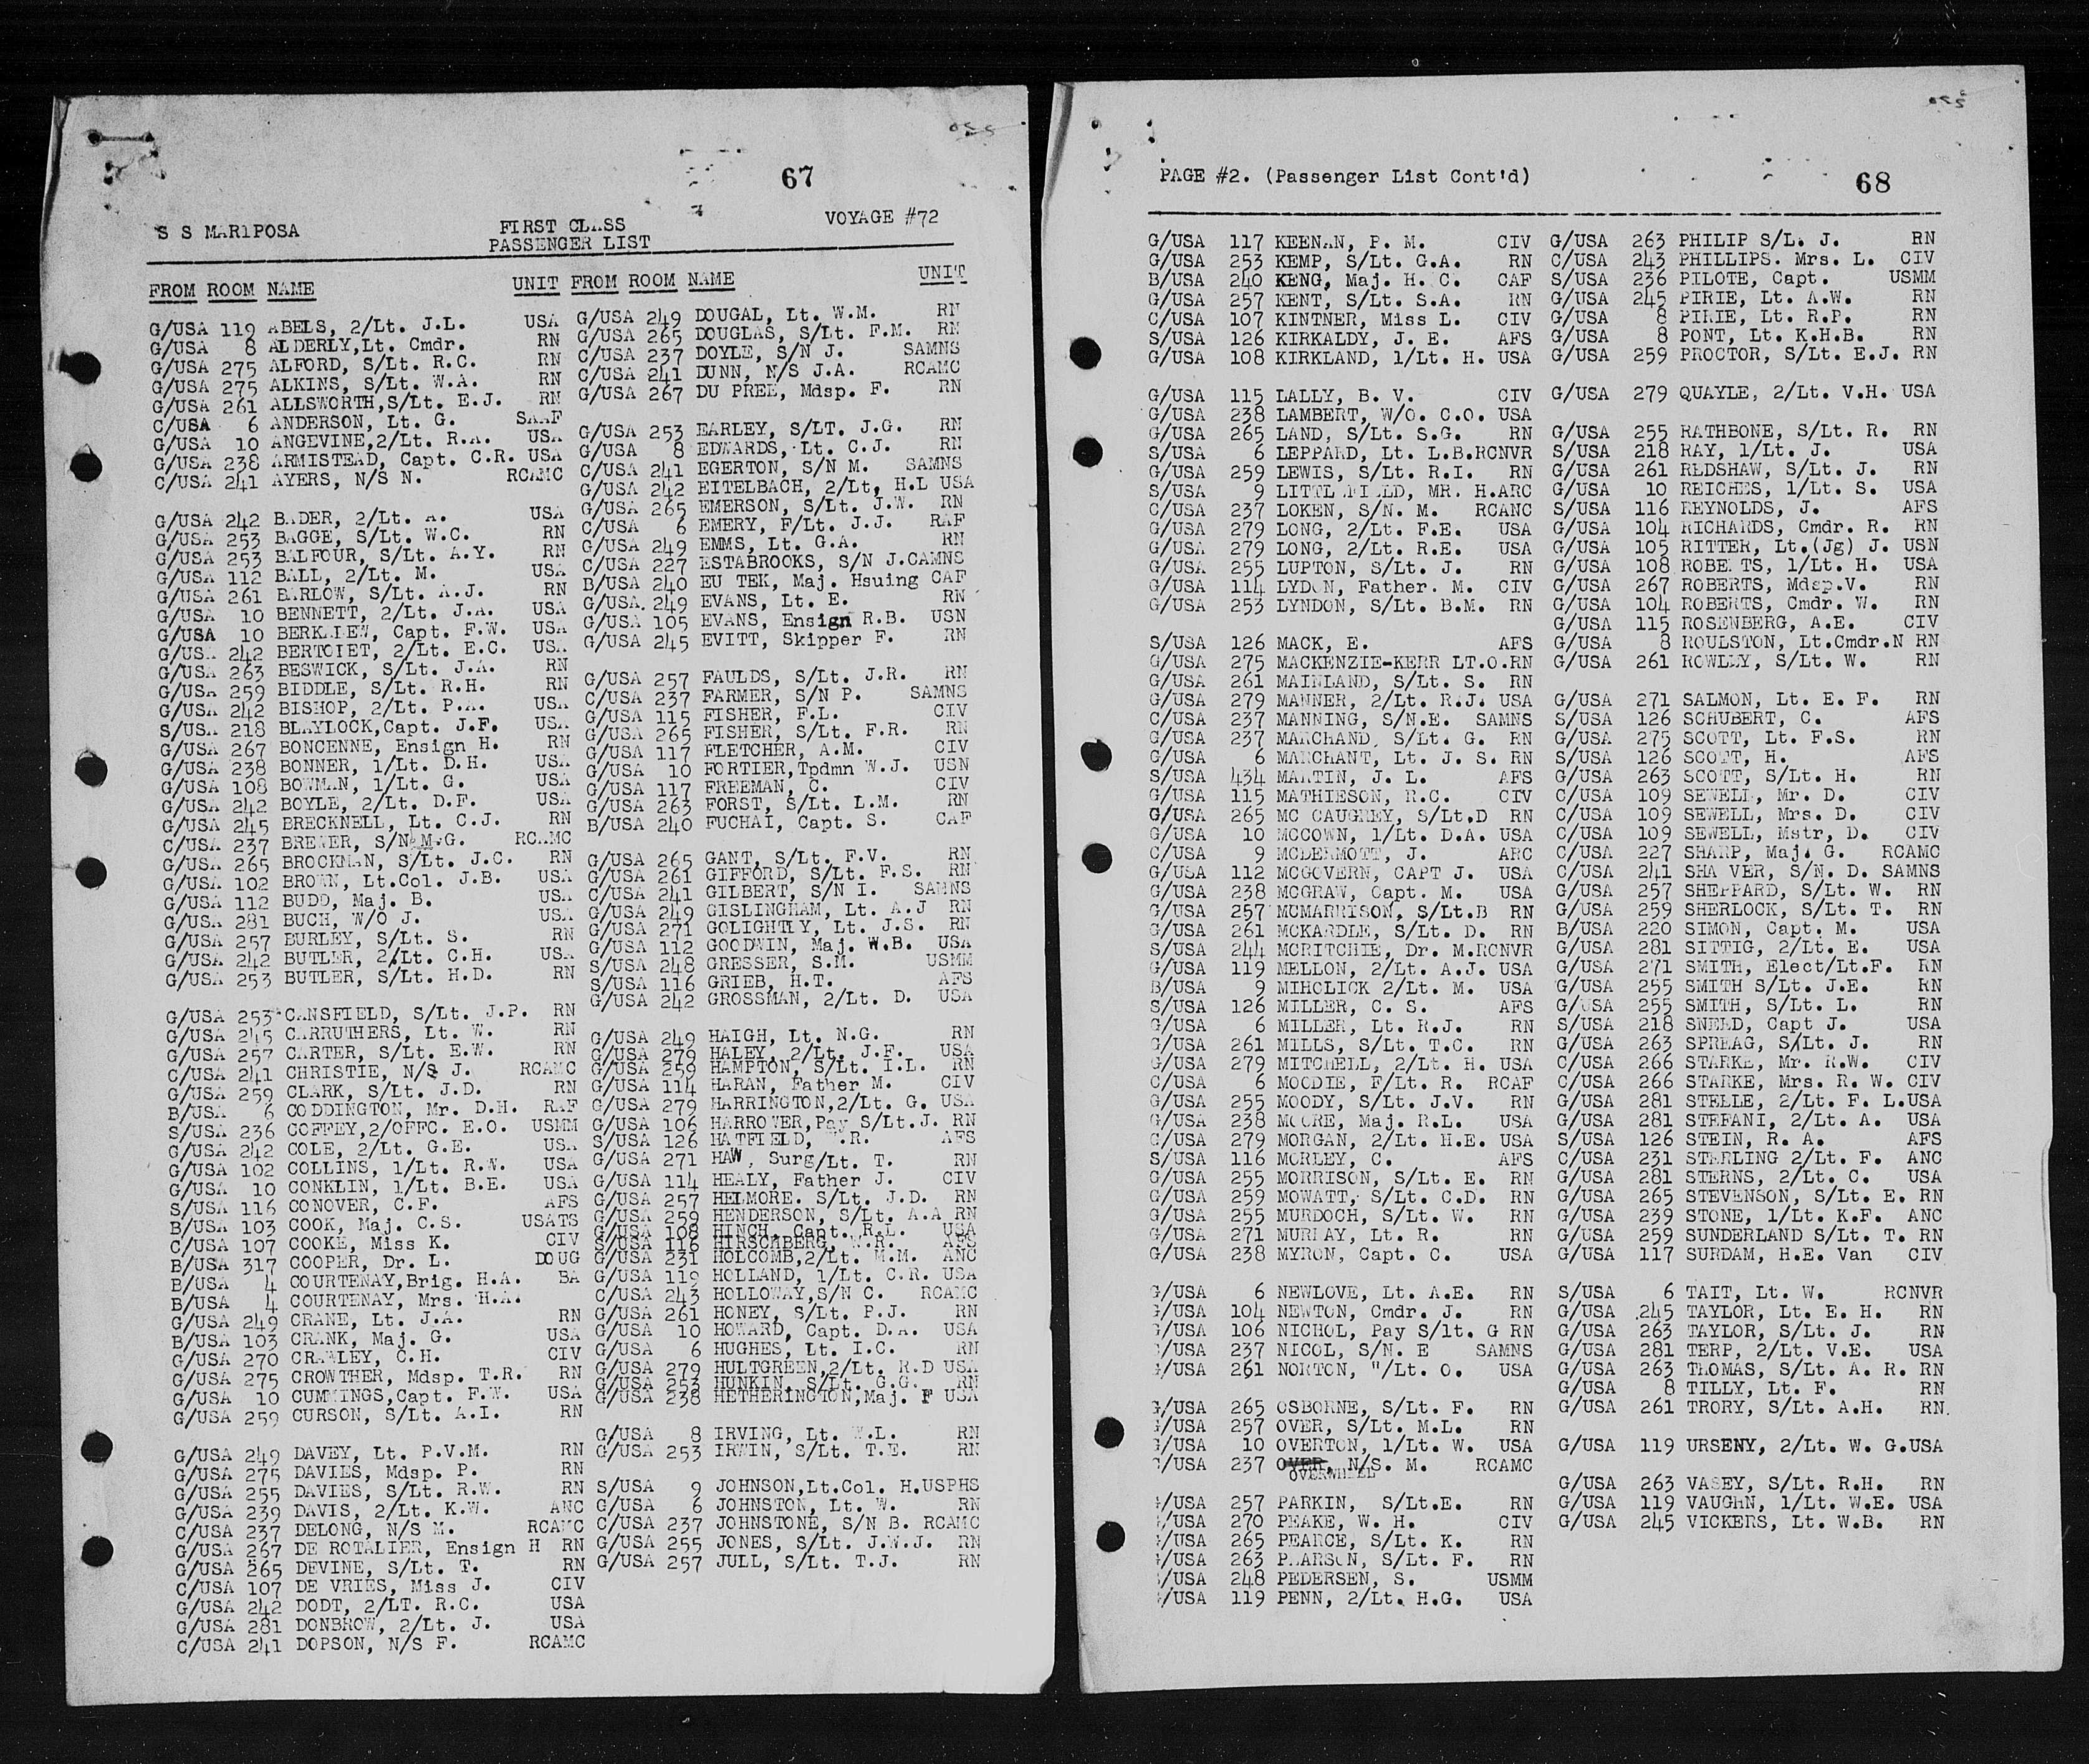 67
S S MARIPOSA
FIRST CLASS
PASSENGER LIST
VOYAGE #72
FROM ROOM NAME UNIT
G/USA 119 ABELS, 2/Lt. J.L. USA
G/USA 8 ALDERLY,Lt. Cmdr. RN
G/USA 275 ALFORD, S/Lt. R.C. RN
G/USA 275 ALKINS, S/Lt. W.A. RN
G/USA 261 ALLSWORTH,S/Lt. E.J. RN
C/USA 6 ANDERSON, Lt. G. SAAF
G/USA 10 ANGEVINE,2/Lt. R.A. USA
G/USA 238 ARMISTEAD, Capt. C.R. USA
C/USA 241 AYERS, N/S N. RCAMC
G/USA 242 BADER, 2/Lt. A. USA
G/USA 253 BAGGE, S/Lt. W.C. RN
G/USA 253 BALFOUR, S/Lt. A.Y. RN
G/USA 112 BALL, 2/Lt. M. USA
G/USA 261 BARLOW, S/Lt. A.J. RN
G/USA 10 BENNETT, 2/Lt. J.A. USA
G/USA 10 Capt. F.W. USA
G/USA 242 BERTOIET, 2/Lt. E.C. USA
G/USA 263 BESWICK, S/Lt. J.A. RN
G/USA 259 BIDDLE, S/Lt. R.H. RN
G/USA 242 BISHOP, 2/Lt. P.A. USA
S/USA 218 BLAYLOCK,Capt. J.F. USA
G/USA 267 BONCENNE, Ensign H. RN
G/USA 238 BONNER, 1/Lt. D.H. USA
G/USA 108 BOWMAN, 1/Lt. G. USA
G/USA 242 BOYLE, 2/Lt. D.F. USA
G/USA 245 BRECKNELL, Lt. C.J. RN
C/USA 237 BREWER, S/N M.G. RCAMC
G/USA 265 BROCKMAN, S/Lt. J.C. RN
G/USA 102 BROWN, Lt.Col. J.B. USA
G/USA 112 BUDD, Maj. B. USA
G/USA 281 BUCH, W/O J. USA
G/USA 257 BURLEY, S/Lt. S. RN
G/USA 242 BUTLER, 2/Lt. C.H. USA
G/USA 253 BUTLER, S/Lt. H.D. RN
G/USA 253 CANSFIELD, S/Lt. J.P. RN
G/USA 245 CARRUTHERS, Lt. W. RN
G/USA 257 CARTER, S/Lt. E.W. RN
C/USA 241 CHRISTIE, N/S J. RCAMC
G/USA 259 CLARK, S/Lt. J.D. RN
B/USA 6 CODDINGTON, Mr. D.H. RAF
S/USA 236 COFFEY,2/OFFC. E.O. USMM
G/USA 242 COLE, 2/Lt. G.E. USA
G/USA 102 COLLINS, 1/Lt. R.W. USA
G/USA 10 CONKLIN, 1/Lt. B.E. USA
S/USA 116 CONOVER, C.F. AFS
B/USA 103 COOK, Maj. C.S. USATS
C/USA 107 COOKE, Miss K. CIV
B/USA 317 COOPER, Dr. L. DOUG
B/USA 4 COURTENAY,Brig. H.A. BA
B/USA 4 COURTENAY, Mrs. H.A.
G/USA 249 CRANE, Lt. J.A. RN
B/USA 103 CRANK, Maj. G. USA
G/USA 270 CRAWLEY, C.H. CIV
G/USA 275 CROWTHER, Mdsp. T.R. RN
G/USA 10 CUMMINGS,Capt. F.W. USA
G/USA 259 CURSON, S/Lt. A.I. RN
G/USA 249 DAVEY, Lt. P.V.M. RN
G/USA 275 DAVIES, Mdsp. P. RN
G/USA 255 DAVIES, S/Lt. R.W. RN
G/USA 239 DAVIS, 2/Lt. K.W. ANC
C/USA 237 DELONG, N/S M. RCAMC
G/USA 267 DE ROTALIER, Ensign H RN
G/USA 265 DEVINE, S/Lt. T. RN
C/USA 107 DE VRIES, Miss J. CIV
G/USA 242 DODT, 2/LT. R.C. USA
G/USA 281 DONBROW, 2/Lt. J. USA
C/USA 241 DOPSON, N/S F. RCAMC
FROM ROOM NAME UNIT
G/USA 249 DOUGAL, Lt. W.M. RN
G/USA 265 DOUGLAS, S/Lt. F.M. RN
C/USA 237 DOYLE, S/N J. SAMNS
C/USA 241 DUNN, N/S J.A. RCAMC
G/USA 267 DU PREE, Mdsp. F. RN
G/USA 253 EARLEY, S/LT. J.G. RN
G/USA 8 EDWARDS, Lt. C.J. RN
C/USA 241 EGERTON, S/N M. SAMNS
G/USA 242 EITELBACH, 2/Lt, H.L USA
G/USA 265 EMERSON, S/Lt. J.W. RN
C/USA 6 EMERY, F/Lt. J.J. RAF
G/USA 249 EMMS, Lt. G.A. RN
C/USA 227 ESTABROOKS, S/N J.CAMNS
B/USA 240 EU TEK, Maj. Hsuing CAF
G/USA. 249 EVANS, Lt. E. RN
G/USA 105 EVANS, Ensign R.B. USN
G/USA 245 EVITT, Skipper F. RN
G/USA 257 FAULDS, S/Lt. J.R. RN
C/USA 237 FARMER, S/N P. SAMNS
G/USA 115 FISHER, F.L. CIV
G/USA 265 FISHER, S/Lt. F.R. RN
G/USA 117 FLETCHER, A.M. CIV
G/USA 10 FORTIER,Tpdmn W.J. USN
G/USA 117 FREEMAN, C. CIV
G/USA 263 FORST, S/Lt. L.M. RN
B/USA 240 FUCHAI, Capt. S. CAF
G/USA 265 GANT, S/Lt. F.V. RN
G/USA 261 GIFFORD, S/Lt. F.S. RN
C/USA 241 GILBERT, S/N I. SAMNS
G/USA 249 GISLINGHAM, Lt. A.J RN
G/USA 271 GOLIGHTLY, Lt. J.S. RN
G/USA 112 GOODWIN, Maj. W.B. USA
S/USA 248 GRESSER, S.M. USMM
S/USA 116 GRIEB, H.T. AFS
G/USA 242 GROSSMAN, 2/Lt. D. USA
G/USA 249 HAIGH, Lt. N.G. RN
G/USA 279 HALEY, 2/Lt. J.F. USA
G/USA 259 HAMPTON, S/Lt. I.L. RN
G/USA 114 HARAN, Father M. CIV
G/USA 279 HARRINGTON,2/Lt. G. USA
G/USA 106 HARROWER,Pay S/Lt.J. RN
S/USA 126 HATFIELD, .R. AFS
G/USA 271 HAW, Surg/Lt. T. RN
G/USA 114 HEALY, Father J. CIV
G/USA 257 HELMORE. S/Lt. J.D. RN
G/USA 259 HENDERSON, S/Lt. A.A RN
G/USA 108 HINCH, Capt. R.L. USA
S/USA 116 HIRSCHBERG, W.R. AFS
G/USA 231 HOLCOMB,2/Lt. M.M. ANC
G/USA 119 HOLLAND, 1/Lt. C.R. USA
C/USA 243 HOLLOWAY,S/N C. RCAMC
G/USA 261 HONEY, S/Lt. P.J. RN
G/USA 10 HOWARD, Capt. D.A. USA
G/USA 6 HUGHES, Lt. I.C. RN
G/USA 279 HULTGREEN,2/Lt. R.D USA
G/USA 253 HUNKIN, S/Lt. G.G. RN
G/USA 238 HETHERINGTON,Maj. F USA
G/USA 8 IRVING, Lt. W.L. RN
G/USA 253 IRWIN, S/Lt. T.E. RN
S/USA 9 JOHNSON,Lt.Col. H.USPHS
G/USA 6 JOHNSTON, Lt. W. RN
C/USA 237 JOHNSTONE, S/N B. RCAMC
G/USA 255 JONES, S/Lt. J.W.J. RN
G/USA 257 JULL, S/Lt. T.J. RN
PAGE #2. (Passenger List Cont'd)
68
G/USA 117 KEENAN, P. M. CIV
G/USA 253 KEMP, S/Lt. G.A. RN
B/USA 240 KENG, Maj. H. C. CAF
G/USA 257 KENT, S/Lt. S.A. RN
C/USA 107 KINTNER, Miss L. CIV
S/USA 126 KIRKALDY, J. E. AFS
G/USA 108 KIRKLAND, 1/Lt. H. USA
G/USA 115 LALLY, B. V. CIV
G/USA 238 LAMBERT, W/O. C.O. USA
G/USA 265 LAND, S/Lt. S.G. RN
S/USA 6 LEPPARD, Lt. L.B.RCNVR
G/USA 259 LEWIS, S/Lt. R.I. RN
S/USA 9 LITTLEFIELD, MR. H.ARC
C/USA 237 LOKEN, S/N. M. RCANC
G/USA 279 LONG, 2/Lt. F.E. USA
G/USA 279 LONG, 2/Lt. R.E. USA
G/USA 255 LUPTON, S/Lt. J. RN
G/USA 114 LYDON, Father. M. CIV
G/USA 253 LYNDON, S/Lt. B.M. RN
S/USA 126 MACK, E. AFS
G/USA 275 MACKENZIE-KERR LT.O.RN
G/USA 261 MAINLAND, S/Lt. S. RN
G/USA 279 MANNER, 2/Lt. R.J. USA
C/USA 237 MANNING, S/N.E. SAMNS
G/USA 237 MARCHAND, S/Lt. G. RN
G/USA 6 MARCHANT, Lt. J. S. RN
S/USA 434 MARTIN, J. L. AFS
G/USA 115 MATHIESON, R.C. CIV
G/USA 265 MC CAUGHEY, S/Lt.D RN
G/USA 10 MCCOWN, 1/Lt. D.A. USA
C/USA 9 MCDERMOTT, J. ARC
G/USA 112 MCGOVERN, CAPT J. USA
G/USA 238 MCGRAW, Capt. M. USA
G/USA 257 MCMARRISON, S/Lt.B RN
G/USA 261 MCKARDLE, S/Lt. D. RN
S/USA 244 MCRITCHIE, Dr. M.RCNVR
G/USA 119 MELLON, 2/Lt. A.J. USA
B/USA 9 MIHCLICK 2/Lt. M. USA
S/USA 126 MILLER, C. S. AFS
G/USA 6 MILLER, Lt. R.J. RN
G/USA 261 MILLS, S/Lt. T.C. RN
G/USA 279 MITCHELL, 2/Lt. H. USA
C/USA 6 MOODIE, F/Lt. R. RCAF
G/USA 255 MOODY, S/Lt. J.V. RN
G/USA 238 MOORE, Maj. R.L. USA
G/USA 279 MORGAN, 2/Lt. H.E. USA
S/USA 116 MORLEY, C. AFS
G/USA 255 MORRISON, S/Lt. E. RN
G/USA 259 MOWATT, S/Lt. C.D. RN
G/USA 255 MURDOCH, S/Lt. W. RN
G/USA 271 MURRAY, Lt. R. RN
G/USA 238 MYRON, Capt. C. USA
G/USA 6 NEWLOVE, Lt. A.E. RN
G/USA 104 NEWTON, Cmdr. J. RN
/USA 106 NICHOL, Pay S/lt. G RN
/USA 237 NICOL, S/N. E SAMNS
/USA 261 NORTON, "/Lt. O. USA
/USA 265 OSBORNE, S/Lt. F. RN
/USA 257 OVER, S/Lt. M.L. RN
/USA 10 OVERTON, 1/Lt. W. USA
/USA 237 OVER, N/S. M. RCAMC
OVERWHEEL
/USA 257 PARKIN, S/Lt.E. RN
/USA 270 PEAKE, W. H. CIV
/USA 265 PEARCE, S/Lt. K. RN
/USA 263 PEARSON, S/Lt. F. RN
/USA 248 PEDERSEN, S. USMM
/USA 119 PENN, 2/Lt. H.G. USA
G/USA 263 PHILIP S/L. J. RN
C/USA 243 PHILLIPS. Mrs. L. CIV
S/USA 236 PILOTE, Capt. USMM
G/USA 245 PIRIE, Lt. A.W. RN
G/USA 8 PIRIE, Lt. R.P. RN
G/USA 8 PONT, Lt. K.H.B. RN
G/USA 259 PROCTOR, S/Lt. E.J. RN
G/USA 279 QUAYLE, 2/Lt. V.H. USA
G/USA 255 RATHBONE, S/Lt. R. RN
S/USA 218 RAY, 1/Lt. J. USA
G/USA 261 REDSHAW, S/Lt. J. RN
G/USA 10 REICHES, 1/Lt. S. USA
S/USA 116 REYNOLDS, J. AFS
G/USA 104 RICHARDS, Cmdr. R. RN
G/USA 105 RITTER, Lt.(Jg) J. USN
G/USA 108 ROBERTS, 1/Lt. H. USA
G/USA 267 ROBERTS, Mdsp.V. RN
G/USA 104 ROBERTS, Cmdr. W. RN
G/USA 115 ROSENBERG, A.E. CIV
G/USA 8 ROULSTON, Lt.Cmdr.N RN
G/USA 261 ROWLEY, S/Lt. W. RN
G/USA 271 SALMON, Lt. E. F. RN
S/USA 126 SCHUBERT, C. AFS
G/USA 275 SCOTT, Lt. F.S. RN
S/USA 126 SCOTT, H. AFS
G/USA 263 SCOTT, S/Lt. H. RN
C/USA 109 SEWELL, Mr. D. CIV
C/USA 109 SEWELL, Mrs. D. CIV
C/USA 109 SEWELL, Mstr, D. CIV
C/USA 227 SHARP, Maj. G. RCAMC
C/USA 241 SHA VER, S/N. D. SAMNS
G/USA 257 SHEPPARD, S/Lt. W. RN
G/USA 259 SHERLOCK, S/Lt. T. RN
B/USA 220 SIMON, Capt. M. USA
G/USA 281 SITTIG, 2/Lt. E. USA
G/USA 271 SMITH, Elect/Lt.F. RN
G/USA 255 SMITH S/Lt. J.E. RN
G/USA 255 SMITH, S/Lt. L. RN
S/USA 218 SNELD, Capt J. USA
G/USA 263 SPREAG, S/Lt. J. RN
C/USA 266 STARKE, Mr. R.W. CIV
C/USA 266 STARKE, Mrs. R. W. CIV
G/USA 281 STELLE, 2/Lt. F. L.USA
G/USA 281 STEFANI, 2/Lt. A. USA
S/USA 126 STEIN, R. A. AFS
C/USA 231 STERLING 2/Lt. F. ANC
G/USA 281 STERNS, 2/Lt. C. USA
G/USA 265 STEVENSON, S/Lt. E. RN
G/USA 239 STONE, 1/Lt. K.F. ANC
G/USA 259 SUNDERLAND S/Lt. T. RN
G/USA 117 SURDAM, H.E. Van CIV
S/USA 6 TAIT, Lt. W. RCNVR
G/USA 245 TAYLOR, Lt. E. H. RN
G/USA 263 TAYLOR, S/Lt. J. RN
G/USA 281 TERP, 2/Lt. V.E. USA
G/USA 263 THOMAS, S/Lt. A. R. RN
G/USA 8 TILLY, Lt. F. RN
G/USA 261 TRORY, S/Lt. A.H. RN.
G/USA 119 URSENY, 2/Lt. W. G.USA
G/USA 263 VASEY, S/Lt. R.H. RN
G/USA 119 VAUGHN, 1/Lt. W.E. USA
G/USA 245 VICKERS, Lt. W.B. RN